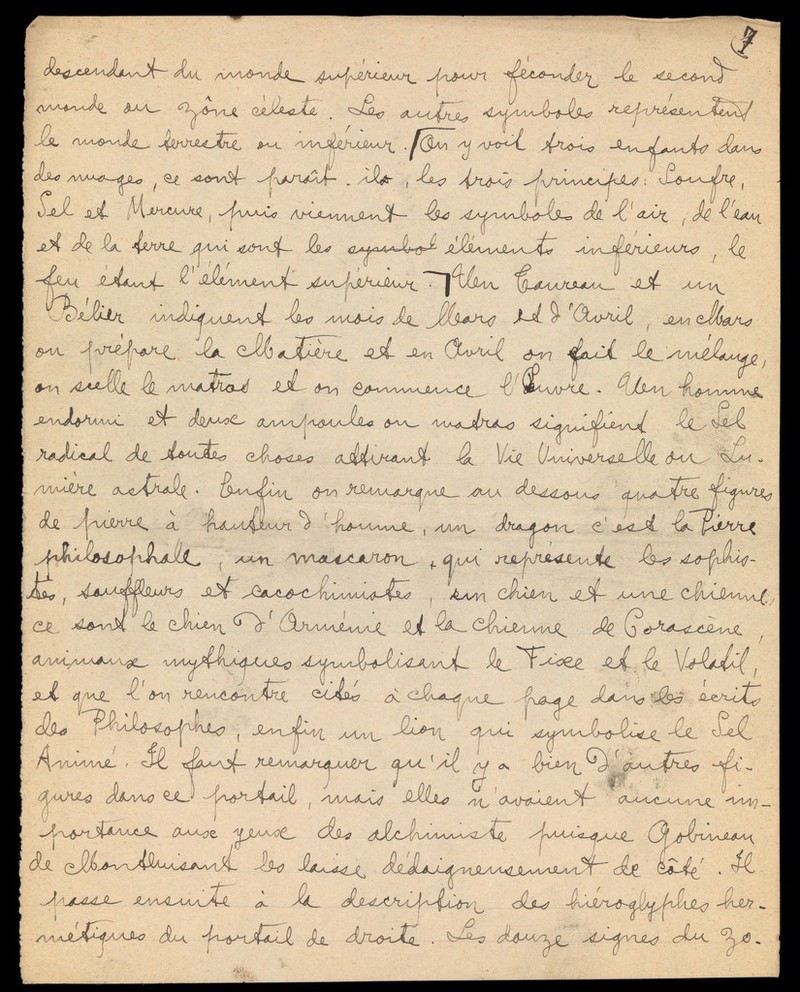 7
descendant du monde supérieur pour féconder le second
monde ou zône céleste. Les autres symboles représentent
le monde terrestre ou inférieur. On y voit trois enfants dans
des nuages, ce sont paraît-ilo, les trois principes: Soufre,
Sel et Mercure, puis viennent les symboles de l'air, de l'eau
et de la terre qui sont les symbol éléments inférieurs, le
feu étant l'élément supérieur. Un Taureau et un
Bélier indiquent les mois de Mars et d'Avril, en Mars
on prépare la Matière et en Avril on fait le mélange,
on scelle le matras et on commence l'Œuvre. Un homme
endormi et deux ampoules ou matras signifient le Sel
radical de toutes choses attirant la Vie Universelle ou Lu-
mière astrale. Enfin on remarque au dessous quatre figures
de pierre à hauteur d'homme, un dragon c'est la Pierre
philosophale, un mascaron, qui représente les sophis-
tes, souffleurs et cacochimistes, un chien et une chienne,
ce sont le chien d'Arménie et la chienne de Corascène,
animaux mythiques symbolisant le Fixe et le Volatil,
et que l'on rencontre cités à chaque page dans les écrits
des Philosophes, enfin un lion qui symbolise le Sel
Animé. Il faut remarquer qu'il y a bien d'autres fi-
gures dans ce portail, mais elles n'avaient aucune im-
portance aux yeux des alchimiste puisque Gobineau
de Montluisant les laisse dédaigneusement de côté. Il
passe ensuite à la description des hiéroglyphes her-
métiques du portail de droite. Les douze signes du zo-